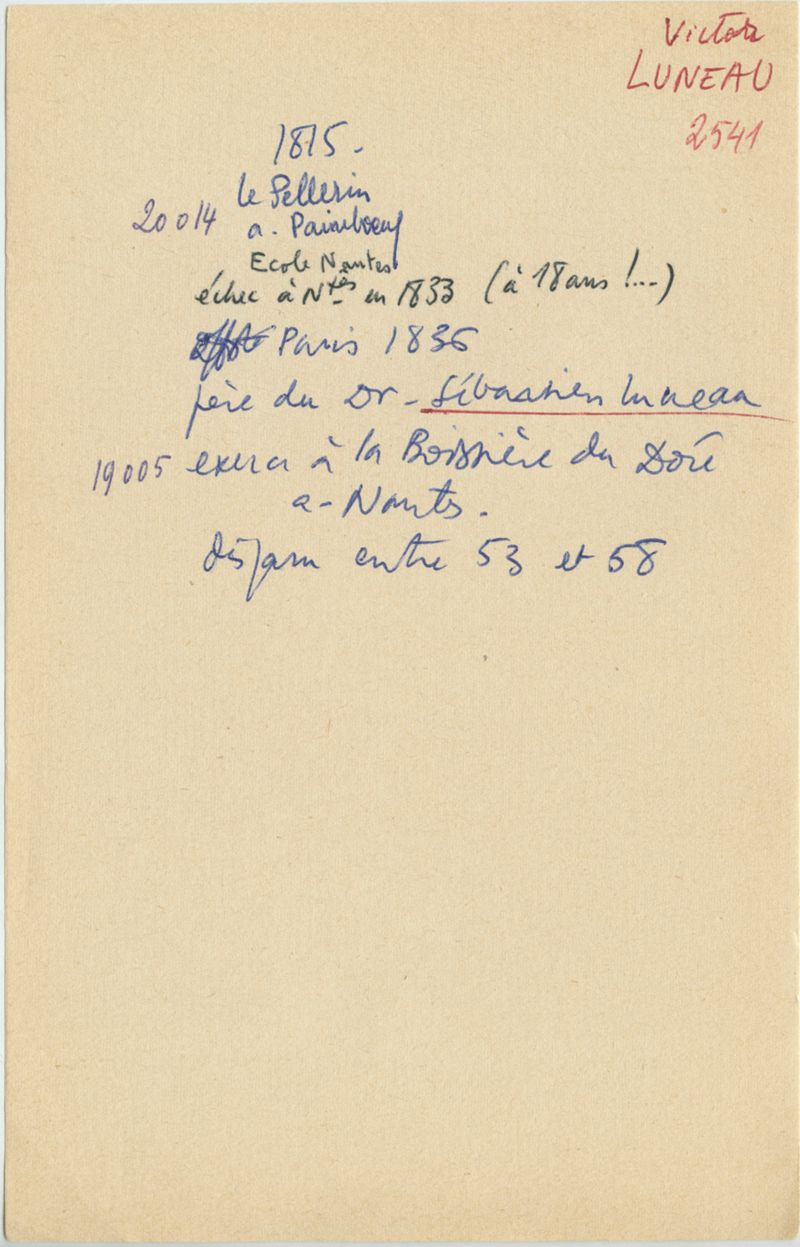 Victor
LUNEAU
2541
1815.
le Pellerin
20014 a. Paimboeuf
Ecole Nantes
échec à Ntes en 1833 (à 18 ans !...)
Paris 1836
père du Dr - Sébastien Luneau
19005 exerce à la Boissière du Doré
a - Nantes.
disparu entre 53 et 58